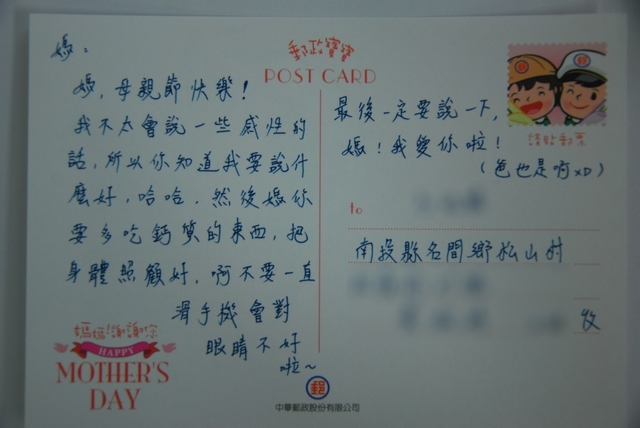 媽：
媽，母親節快樂！
我不太會說一些感性的
話，所以你知道我要說什
麼好，哈哈，然後媽你
要多吃鈣質的東西，把
身體照顧好，啊不要一直
滑手機會對
眼睛不好
啦~
媽媽！謝謝你
HAPPY
MOTHER'S
DAY
郵政寶寶
POST CARD
請貼郵票
最後一定要說一下，
媽！我愛你啦！
（爸也是啊xD）
to
南投縣名間鄉松山村
收
郵
中華郵政股份有限公司